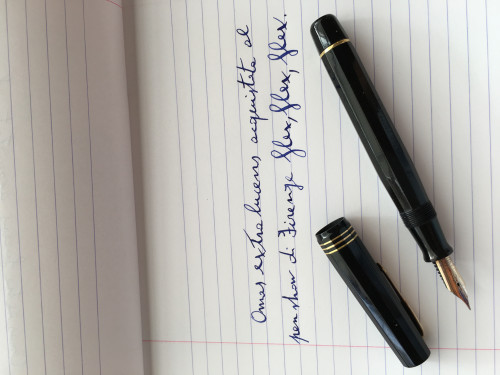 Omas extra lucens acquistata al
pen show di Firenze flex, flex, flex.